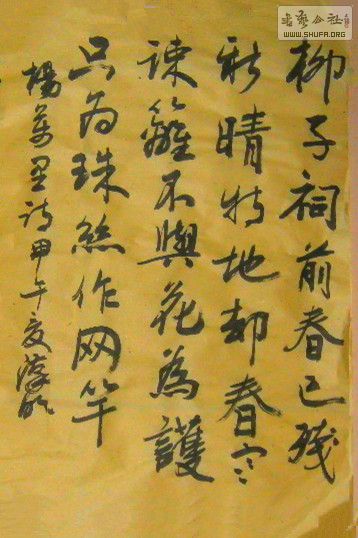 書藝公社
WWW.SHUFA.ORG
柳子祠前春已殘
新晴特地却春寒
疎籬不與花為護
只为珠絲作网竿
楊萬里诗甲午夏